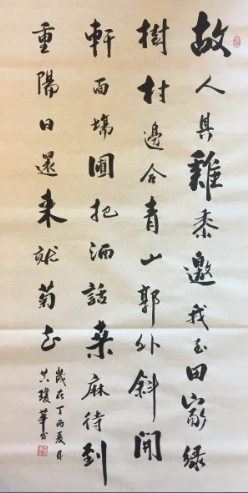 故人具雞黍邀我至田家綠
樹村邊合青山郭外斜開
軒面場圃把酒話桑麻待到
重陽日還來就菊花
歲在丁酉夏日
瓊華書